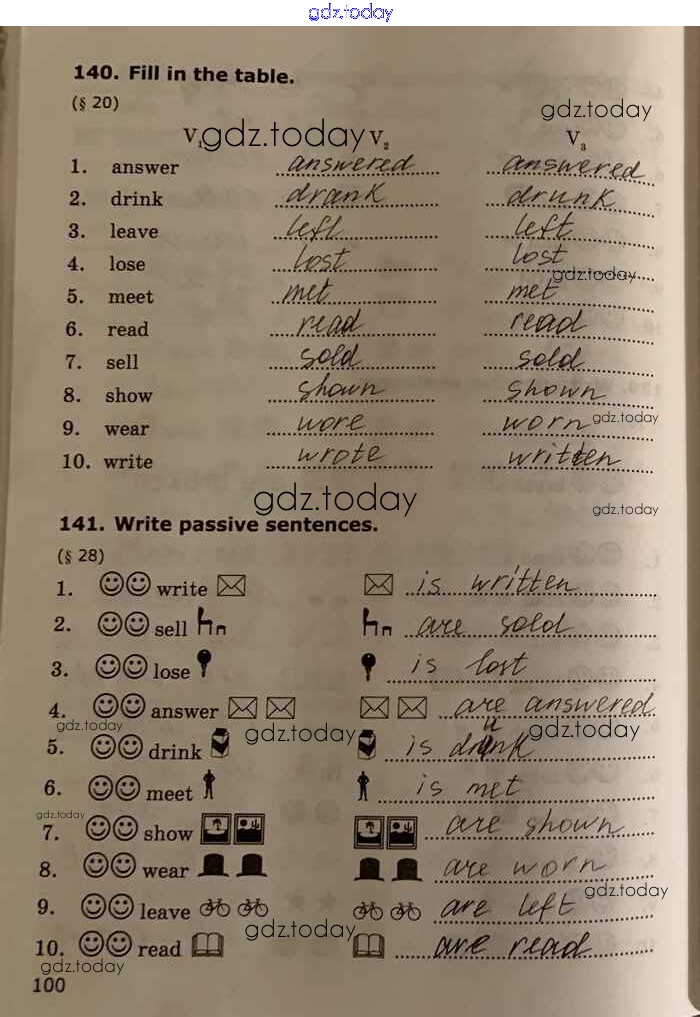 gdz.today
140. Fill in the table.
(§ 20)
gdz.today
V₁ gdz.today V₂ V₃
1. answer answered answered
2. drink drank drunk
3. leave left left
4. lose lost lost
gdz.today
5. meet met met
6. read read read
7. sell sold sold
8. show shown shown
gdz.today
9. wear wore worn
10. write wrote written
gdz.today
gdz.today
141. Write passive sentences.
(§ 28)
1. write is written
2. sell are sold
3. lose is lost
4. answer are answered
gdz.today gdz.today gdz.today
5. drink is drunk
6. meet is met
gdz.today
7. show are shown
8. wear are worn
gdz.today
9. leave are left
gdz.today
10. read are read
gdz.today
100